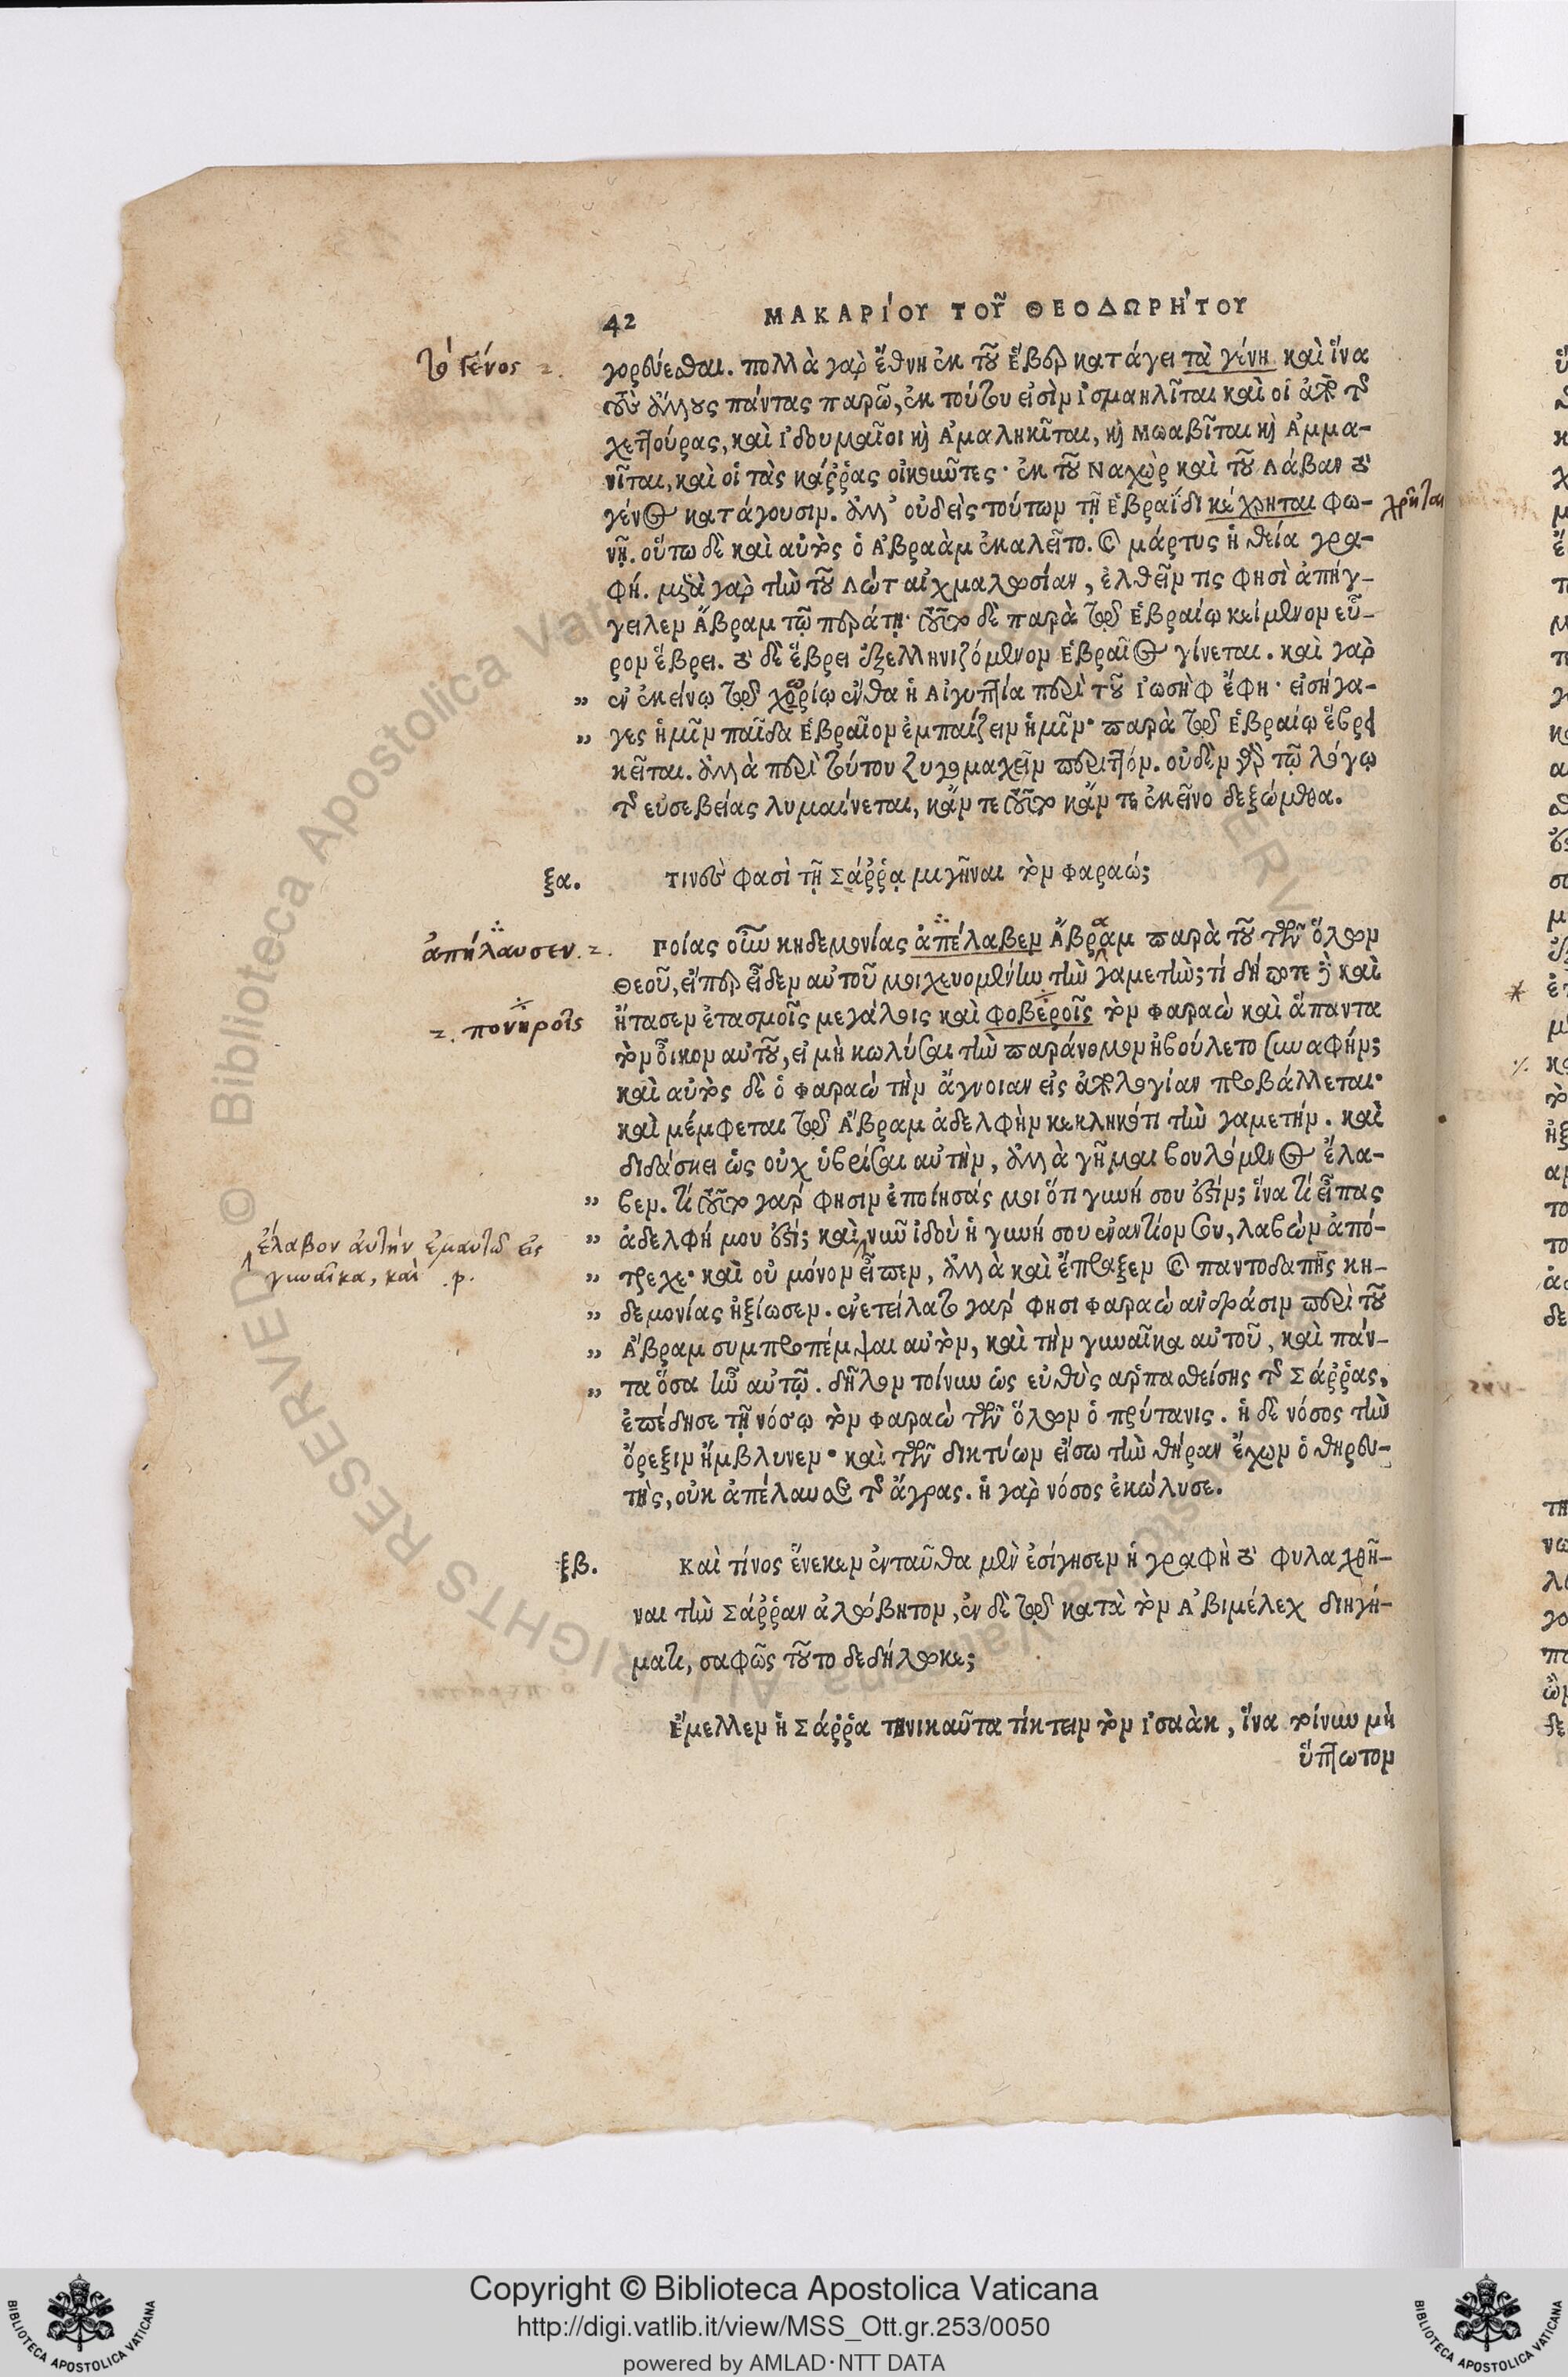 42 ΜΑΚΑΡΊΟΥ ΤΟΥ͂ ΘΕΟΔΩΡΉΤΟΥ
τὸ γένος 2.
γορεύεσθαι. πολλὰ γὰρ ἔθνη ἐκ τοῦ Ἕβερ κατάγει τὰ γένη καὶ ἵνα
τοὺς ἄλλους πάντας παρῶ, ἐκ τούτου εἰσὶν Ἰσμαηλῖται καὶ οἱ ἀπὸ τῆς
χετούρας, καὶ Ἰδουμαῖοι καὶ Ἀμαληκῖται, καὶ Μωαβῖται καὶ Ἀμμα-
νῖται, καὶ οἱ τὰς κάῤῥας οἰκοῦντες· ἐκ τοῦ Ναχὼρ καὶ τοῦ Λάβαν τὸ
γένος κατάγουσιν. ἀλλ' οὐδεὶς τούτων τῇ Ἑβραΐδι κέχρηται φω-
χρῆται
νῇ. οὕτω δὲ καὶ αὐτὸς ὁ Ἀβραὰμ ἐκαλεῖτο. καὶ μάρτυς ἡ θεία γρα-
φή. μετὰ γὰρ τὴν τοῦ Λὼτ αἰχμαλωσίαν, ἐλθεῖν τις φησὶ ἀπήγ-
γειλεν Ἄβραμ τῷ περάτῃ· τοῦτο δὲ παρὰ τῷ Ἑβραίῳ κείμενον εὗ-
ρον ἕβρει. τὸ δὲ ἕβρει ἐξελληνιζόμενον Ἑβραῖος γίνεται. καὶ γὰρ
„ ἐν ἐκείνῳ τῷ χωρίῳ ἔνθα ἡ Αἰγυπτία περὶ τοῦ Ἰωσὴφ ἔφη· εἰσήγα-
„ γες ἡμῖν παῖδα Ἑβραῖον ἐμπαίζειν ἡμῖν· παρὰ τῷ Ἑβραίῳ ἕβρει
κεῖται. ἀλλὰ περὶ τούτου ζυγομαχεῖν περιττόν. οὐδὲν γὰρ τῷ λόγῳ
τῆς εὐσεβείας λυμαίνεται, κἄν τε τοῦτο κἄν τε ἐκεῖνο δεξώμεθα.
ξα. τινὲς φασὶ τῇ Σάῤῥᾳ μιγῆναι τὸν Φαραώ;
ἀπήλαυσεν. 2.
Ποίας οὖν κηδεμονίας ἀπέλαβεν Ἄβραμ παρὰ τοῦ τῶν ὅλων
Θεοῦ, εἴπερ εἶδεν αὐτοῦ μοιχευομένην τὴν γαμετήν; τί δή ποτε δὲ καὶ
2. πονηροῖς
ἤτασεν ἐτασμοῖς μεγάλοις καὶ φοβεροῖς τὸν Φαραὼ καὶ ἅπαντα
τὸν οἶκον αὐτοῦ, εἰ μὴ κωλύσαι τὴν παράνομον ἠβούλετο συναφήν;
καὶ αὐτὸς δὲ ὁ Φαραὼ τὴν ἄγνοιαν εἰς ἀπολογίαν προβάλλεται·
καὶ μέμφεται τῷ Ἄβραμ ἀδελφὴν κεκληκότι τὴν γαμετήν. καὶ
διδάσκει ὡς οὐχ ὑβρίσαι αὐτὴν, ἀλλὰ γῆμαι βουλόμενος ἔλα-
„ βεν. τί τοῦτο γάρ φησιν ἐποίησάς μοι ὅτι γυνή σου ἐστίν; ἵνα τί εἶπας
ἔλαβον αὐτὴν ἐμαυτῷ εἰς
γυναῖκα, καὶ .p.
„ ἀδελφή μου ἐστί; καὶ νῦν ἰδοὺ ἡ γυνή σου ἐναντίον σου, λαβὼν ἀπό-
„ τρεχε· καὶ οὐ μόνον εἶπεν, ἀλλὰ καὶ ἔπραξεν καὶ παντοδαπῆς κη-
„ δεμονίας ἠξίωσεν. ἐνετείλατο γάρ φησι Φαραὼ ἀνδράσιν περὶ τοῦ
„ Ἄβραμ συμπροπέμψαι αὐτὸν, καὶ τὴν γυναῖκα αὐτοῦ, καὶ πάν-
„ τα ὅσα ἦν αὐτῷ. δῆλον τοίνυν ὡς εὐθὺς ἁρπασθείσης τῆς Σάῤῥας,
ἐπέδησε τῇ νόσῳ τὸν Φαραὼ τῶν ὅλων ὁ πρύτανις. ἡ δὲ νόσος τὴν
ὄρεξιν ἤμβλυνεν· καὶ τῶν δικτύων εἴσω τὴν θήραν ἔχων ὁ θηρευ-
τὴς, οὐκ ἀπέλαυσε τῆς ἄγρας. ἡ γὰρ νόσος ἐκώλυσε.
ξβ. Καὶ τίνος ἕνεκεν ἐνταῦθα μὲν ἐσίγησεν ἡ γραφὴ τὸ φυλαχθῆ-
ναι τὴν Σάῤῥαν ἀλώβητον, ἐν δὲ τῷ κατὰ τὸν Ἀβιμέλεχ διηγή-
ματι, σαφῶς τοῦτο δεδήλωκε;
Ἔμελλεν ἡ Σάῤῥα τηνικαῦτα τίκτειν τὸν Ἰσαὰκ, ἵνα τοίνυν μὴ
ὕποπτον
Copyright © Biblioteca Apostolica Vaticana
http://digi.vatlib.it/view/MSS_Ott.gr.253/0050
powered by AMLAD·NTT DATA